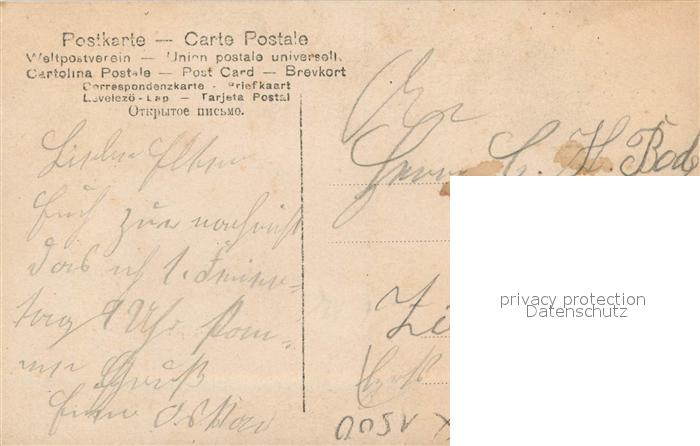 Postkarte — Carte Postale
Weltpostverein — Union postale universell.
Cartolina Postale — Post Card — Brevkort
Correspondenzkarte - Briefkaart
Levelező-Lap — Tarjeta Postal
Открытое письмо.
Liebe Eltern
Euch zur nachricht
das ich 1. Feier-
tag 9 Uhr kom-
me Gruß
An
Herrn C. H. Bod
privacy protection
Datenschutz